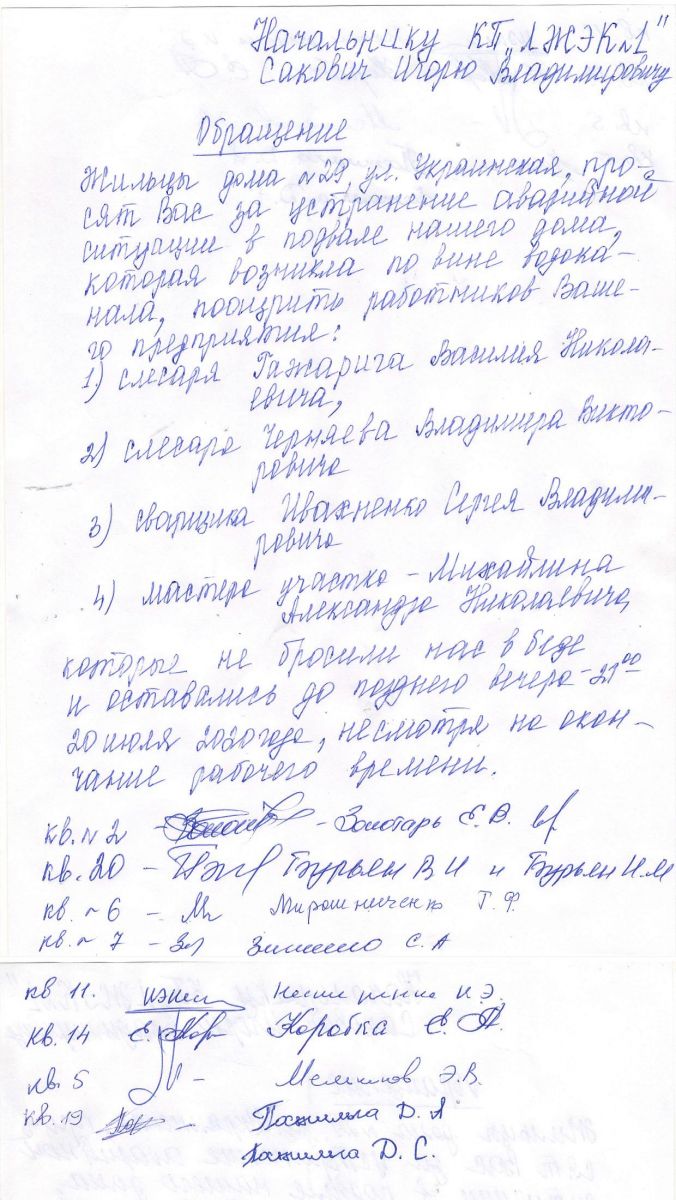 Начальнику КП „ЛЖЭК №1"
Сакович Игорю Владимировичу
Обращение
Жильцы дома №29, ул. Украинская, про-
сят Вас за устранение аварийной
ситуации в подвале нашего дома,
которая возникла по вине водока-
нала, поощрить работников Ваше-
го предприятия:
1) слесаря Гажарига Василия Никола-
евича,
2) слесаря Черняева Владимира Викто-
ровича
3) сварщика Ивахненко Сергея Владими-
ровича
4) мастера участка – Михайлина
Александра Николаевича,
которые не бросили нас в беде
и оставались до позднего вечера – 21⁰⁰
20 июля 2020 года, несмотря на окон-
чание рабочего времени.
кв. №2 – – Золотарь Е.В.
кв. 20 – Бурьян В И и Бурьян И.М
кв. №6 – Мирошниченко Т.Ф.
кв. №7 – С.А
кв 11. И.Э.
кв. 14 Е. Кор Коробка Е.А.
кв. 5 – Мельников Э.В.
кв. 19 – Пажильга Д.А.
Пажильга Д.С.